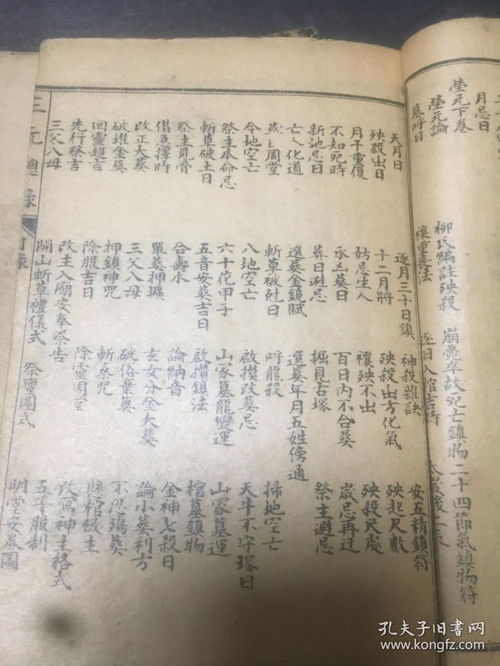 月忌日
塋元下卷
塋元論
墓呼日
柳氏編註殃殺 崩薨卒故死亡鎮物二十四節氣鎮物符
禳重喪法 逐日入殮吉時
三元總錄
目錄
天月日 逐月三十日鎮 神殺雜訣 安五精鎮符
殃殺出日 十二月將 殃殺出方化氣 殃起尺數
月干重復 妨忌生人 禳殃不出 殃殺尺處
不知死時 承凶葬日 百日內不合葬 歲忌再逆
新地忌日 葬日避忌 掘見古塚 祭主避忌
亡人化道 選葬金鏡賦 選葬年月五姓傍通
喪上周堂 斬草被尅日 呼龍殺 掃地空亡
令地空亡 八地空亡 啟攢改葬忌 天牛不守塚日
祭主本命忌 六十花甲子 山家墓龍變運 山家墓運
斬草破土日 五音安葬吉日 啟攢鎮法 棺墓鎮物
祭主見骨 合壽木 論納音 金神七殺日
借邑擇時 單葬押壙 玄女分金大葬 論小葬利方
改正大葬 三父八母 破俗棄葬 不忌殤葬
破堆金葬 押鎮神咒 斬衰咒
回靈趨吉 除服吉日 除靈周堂 改寫神主格式
先行祭告 改主入廟安奉祭告 五等服制
三父八母 開山斬草禮儀式 祭靈圖式 明堂安葬圖
孔夫子旧书网
www.kongfz.com